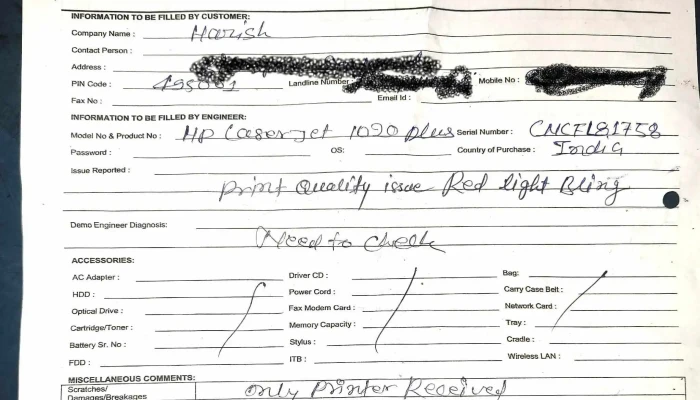 INFORMATION TO BE FILLED BY CUSTOMER:
Company Name : Harish
Contact Person :
Address :
PIN Code : 495001 Landline Number Mobile No :
Fax No : Email Id :
INFORMATION TO BE FILLED BY ENGINEER:
Model No & Product No : HP Laserjet 1020 plus Serial Number : CNCFL81758
Password : OS: Country of Purchase : India
Issue Reported :
Print Quality issue Red light Bling
Demo Engineer Diagnosis:
Need to check
ACCESSORIES:
AC Adapter : Driver CD : Bag:
HDD : Power Cord : Carry Case Belt :
Optical Drive : Fax Modem Card : Network Card :
Cartridge/Toner : Memory Capacity : Tray :
Battery Sr. No : Stylus : Cradle :
FDD : ITB : Wireless LAN :
MISCELLANEOUS COMMENTS:
Scratches/ only Printer Received
Damages/Breakages